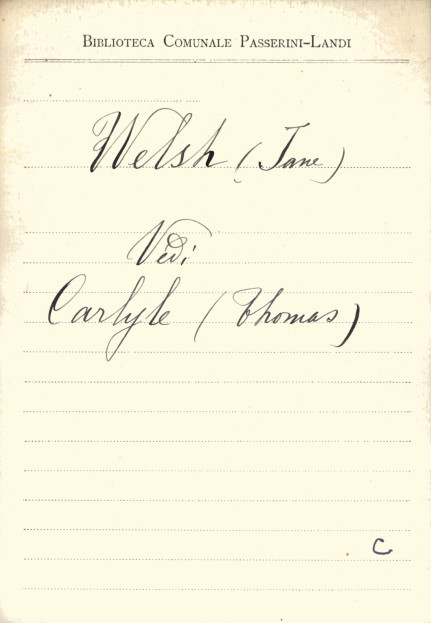 Biblioteca Comunale Passerini-Landi
Welsh (Jane)
Vedi
Carlyle (Thomas)
C